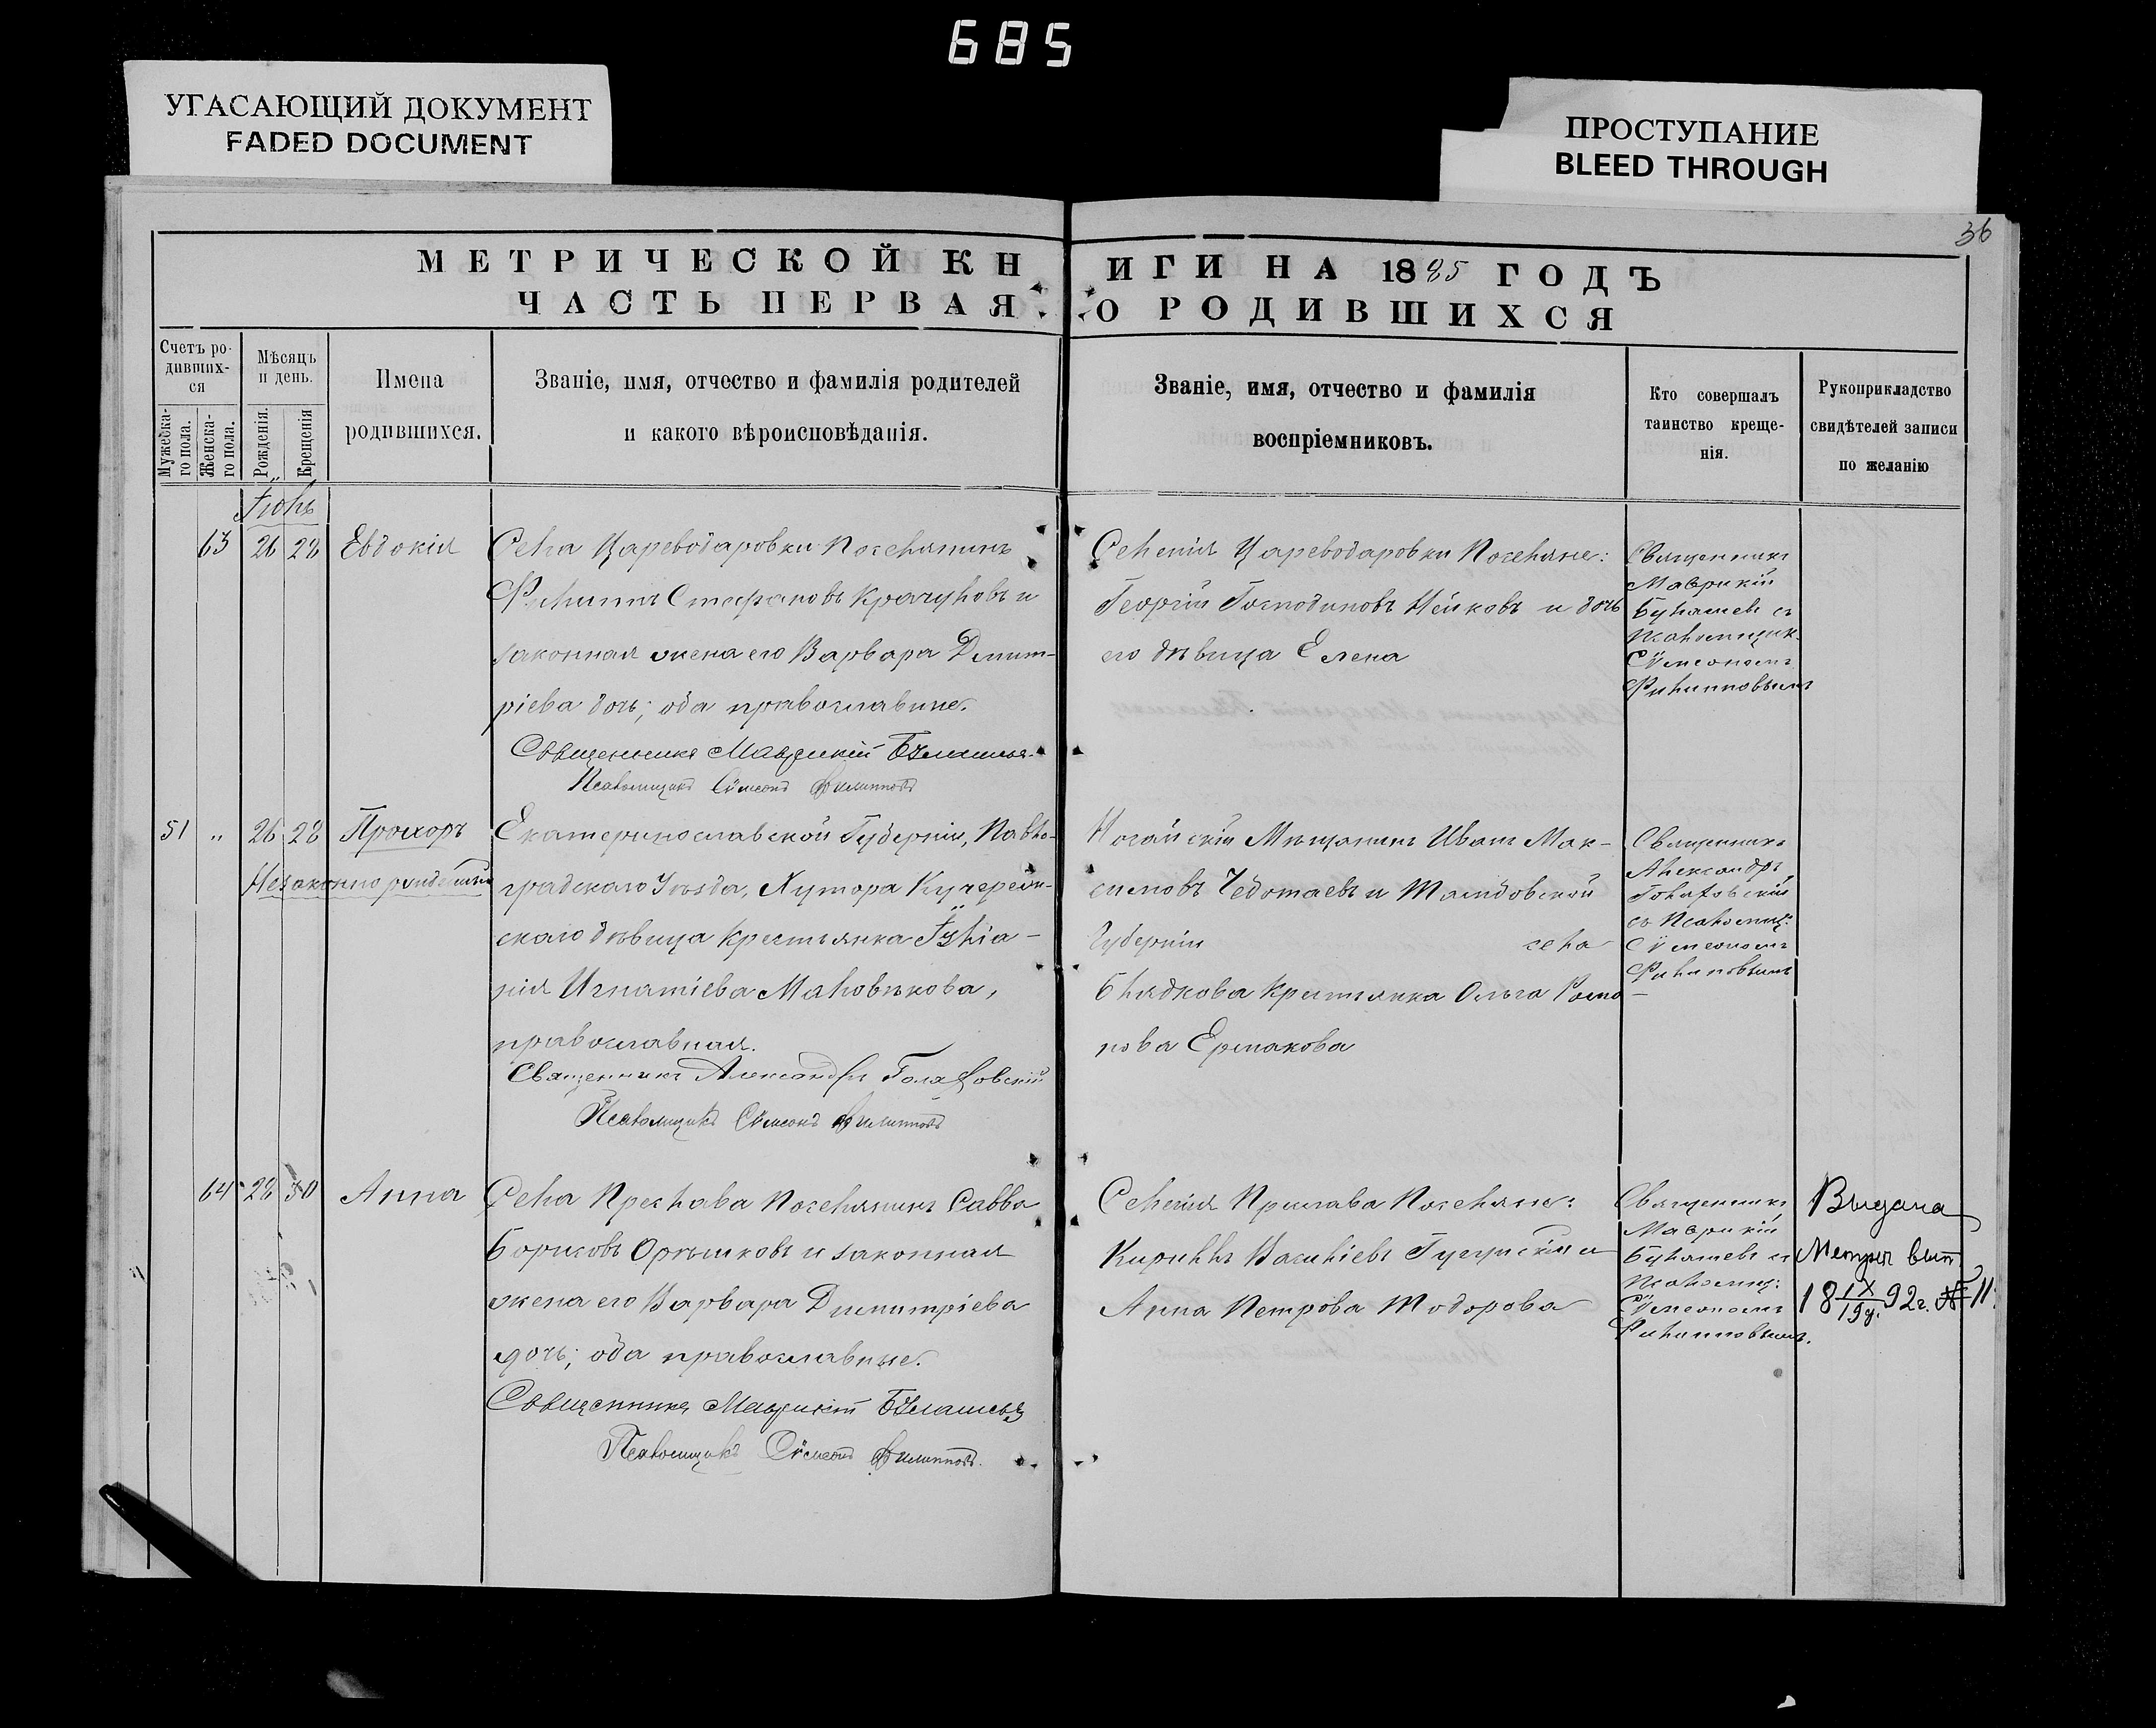 685
УГАСАЮЩИЙ ДОКУМЕНТ
FADED DOCUMENT
ПРОСТУПАНИЕ
BLEED THROUGH
36
МЕТРИЧЕСКОЙ КНИГИ НА 1885 ГОДЪ
ЧАСТЬ ПЕРВАЯ. О РОДИВШИХСЯ
Счетъ ро-
дивших-
ся
Мужеска-
го пола.
Женска-
го пола.
Мѣсяцъ
и день.
Рожденія.
Крещенія
Имена
родившихся.
Званіе, имя, отчество и фамилія родителей
и какого вѣроисповѣданія.
Званіе, имя, отчество и фамилія
воспріемниковъ.
Кто совершалъ
таинство креще-
нія.
Рукоприкладство
свидѣтелей записи
по желанію
Іюнь
63 26 28 Евдокія
Села Цареводаровки Поселянинъ
Филиппъ Стефановъ Крачуновъ и
законная жена его Варвара Димит-
ріева дочь; оба православные.
Священникъ Маврикій
Псаломщикъ Сѵмеонъ Филипповъ
Селенія Цареводаровки Поселяне:
Георгій Господиновъ Нейковъ и дочь
его дѣвица Елена
Священникъ
Маврикій
съ
Псаломщик.
Сѵмеономъ
Филипповымъ
51 " 26 28 Прохоръ
Незаконнорожденный
Екатеринославской Губерніи, Павло-
градскаго Уѣзда, Хутора
скаго дѣвица Крестьянка Іуліа-
нія Игнатіева Маловѣкова,
православная.
Священникъ Александръ Голяховскій
Псаломщикъ Сѵмеонъ Филипповъ
Ногайскій Мѣщанинъ Иванъ Мак-
симовъ Чеботаевъ и Тамбовской
Губерніи села
Крестьянка Ольга Рома-
нова Ермакова
Священникъ
Александръ
Голяховскій
съ Псаломщ:
Сѵмеономъ
Филиповымъ
64 28 30 Анна
Села Преслава Поселянинъ Савва
Борисовъ Орѣшковъ и законная
жена его Варвара Димитріева
дочь; оба православные.
Священникъ Маврикій
Псаломщикъ Сѵмеонъ Филипповъ.
Селенія Преслава Поселяне:
Кириллъ Василіевъ и
Анна Петрова Тодорова
Священникъ
Маврикій
съ
Псаломщ:
Сѵмеономъ
Филипповымъ.
Выдача
Метрич вып
18 IX/19 92 г. № 11